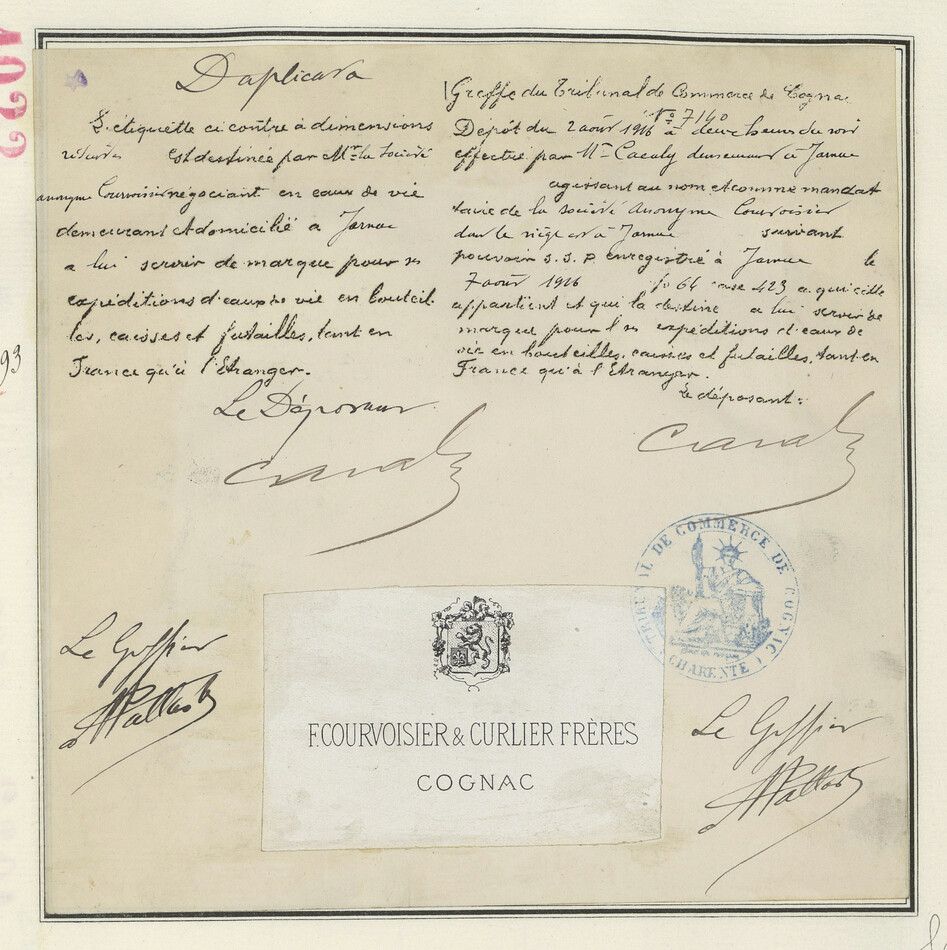 Duplicata
L'étiquette ci contre à dimensions
est destinée par Mr la Société
anonyme Courvoisier négociant en eaux de vie
demeurant et domicilié à Jarnac
a lui servir de marque pour ses
expéditions d'eaux de vie en bouteil
les, caisses et futailles, tant en
France qu'à l'Etranger.
Le Déposant
Greffe du Tribunal de Commerce de Cognac
No 7140
Dépôt du 2 août 1916 à deux heures du soir
effectué par Mr demeurant à Jarnac
agissant au nom et comme mandat
taire de la société Anonyme Courvoisier
dont le siège est à Jarnac suivant
pouvoir S.S.P. enregistré à Jarnac le
7 août 1916 fo 64 case 423 a qui cette
appartient et qui la destine a lui servir de
marque pour les expéditions d'eaux de
vie en bouteilles, caisses et futailles, tant en
France qu'à l'Etranger.
Le déposant:
93
TRIBUNAL DE COMMERCE DE COGNAC
(CHARENTE)
Le Greffier
F. COURVOISIER & CURLIER FRÈRES
COGNAC
Le Greffier